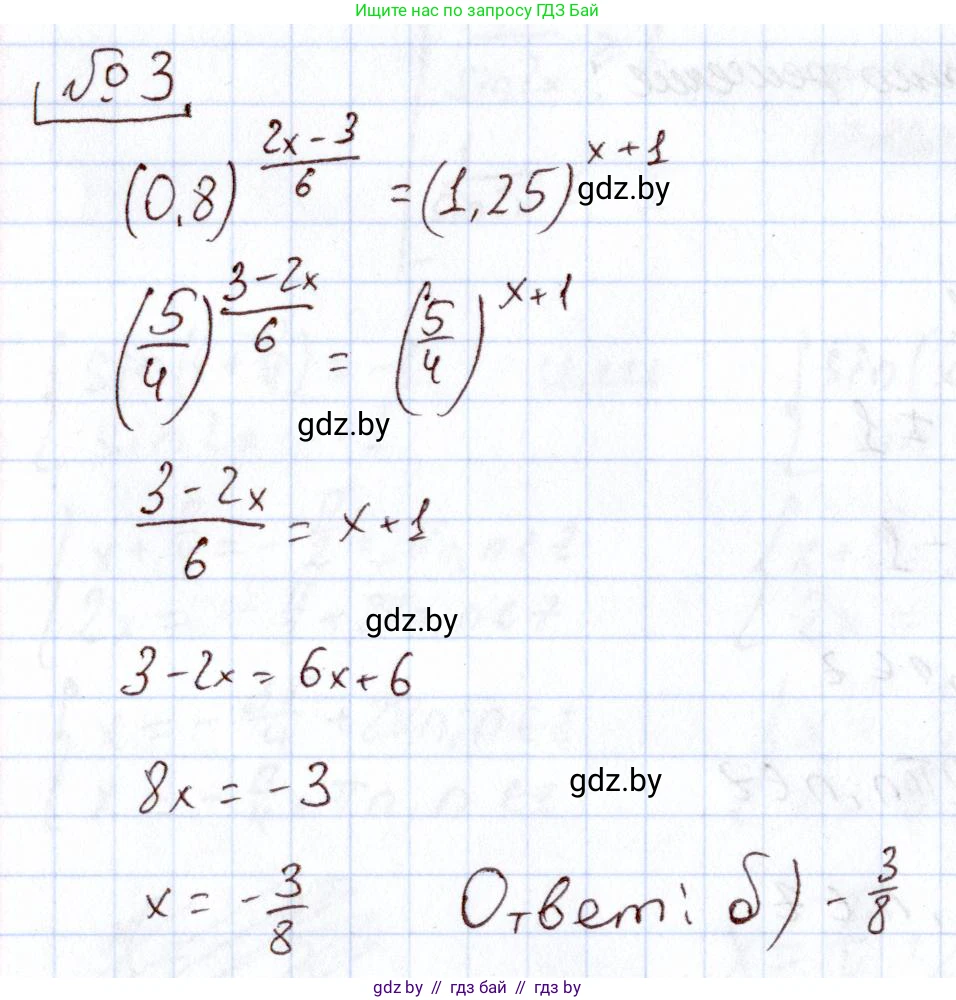 Ищите нас по запросу ГДЗ Бай
№ 3
(0,8)^((2x-3)/6) = (1,25)^(x+1)
gdz.by
(5/4)^((3-2x)/6) = (5/4)^(x+1)
gdz.by
(3-2x)/6 = x+1
gdz.by
3-2x = 6x+6
8x = -3
gdz.by
x = -3/8 Ответ: б) -3/8
gdz by // гдз бай // gdz by